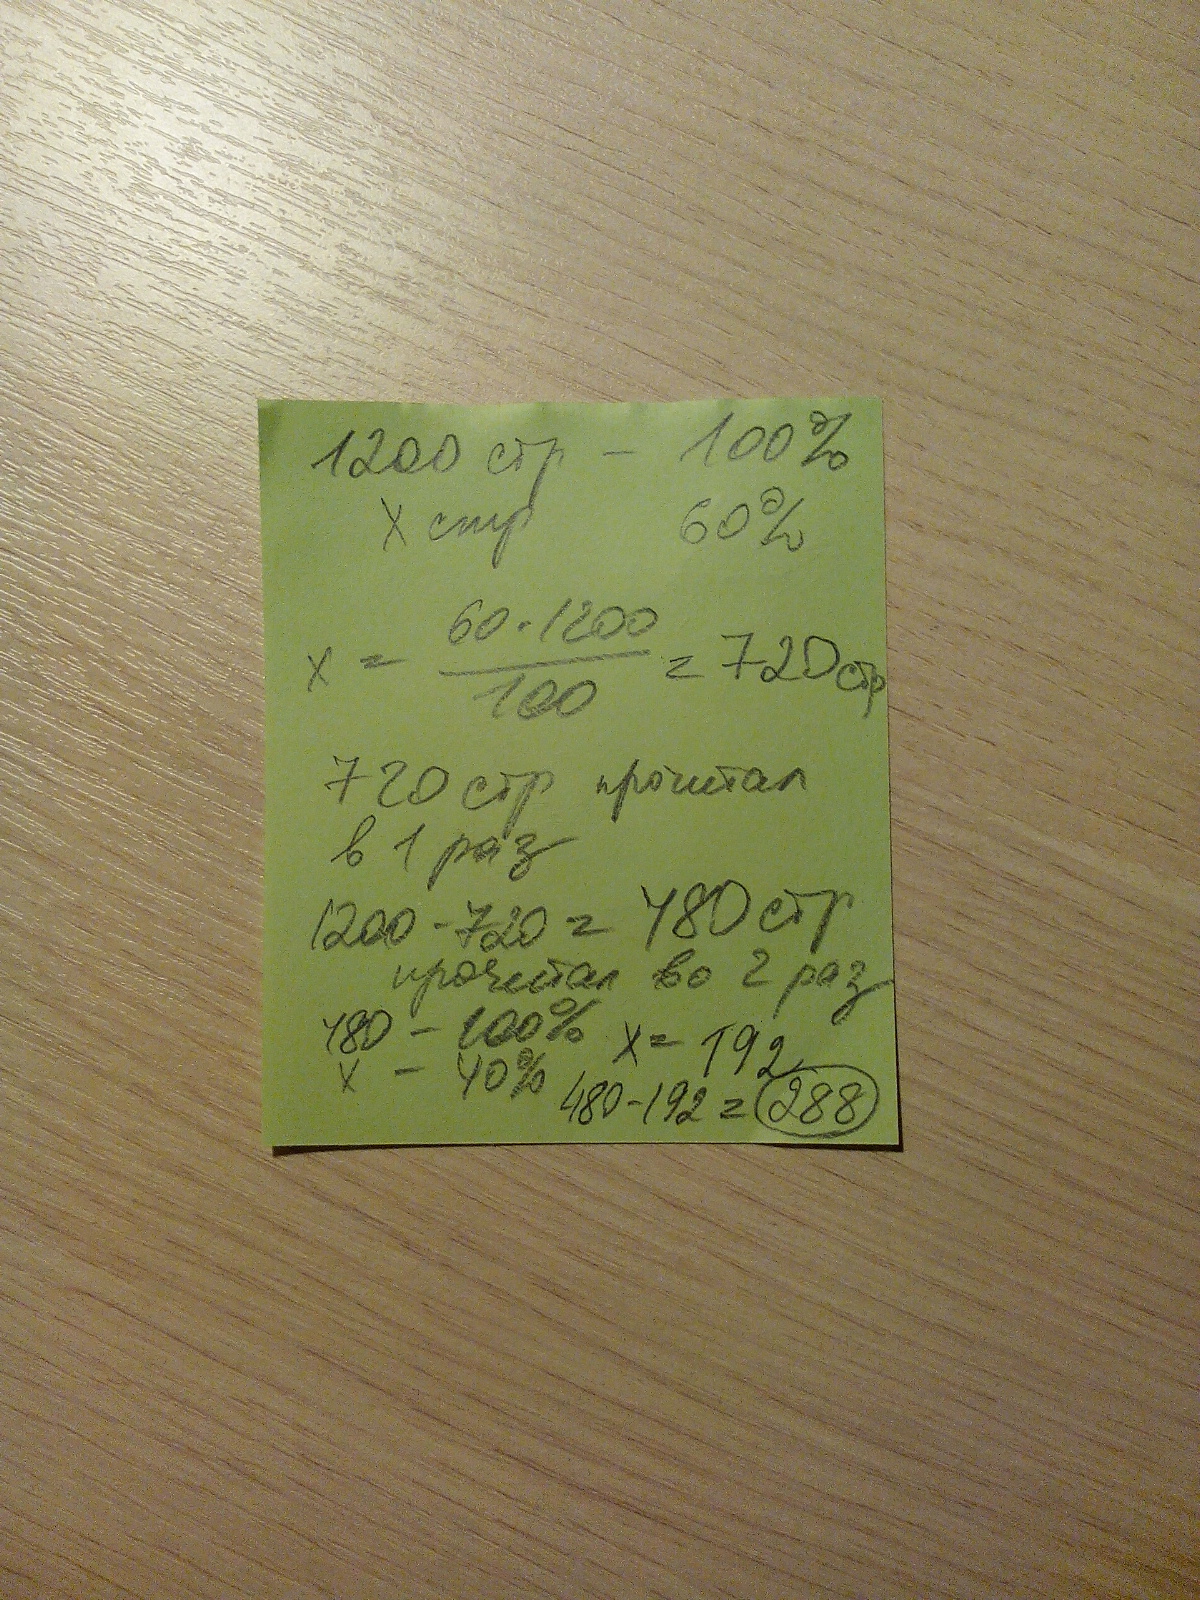 1200 стр - 100%
x стр 60%
x = 60·1200 / 100 = 720 стр
720 стр прочитал
в 1 раз
1200 - 720 = 480 стр
прочитал во 2 раз
480 - 100%
x - 40%
x = 192
480 - 192 = 288